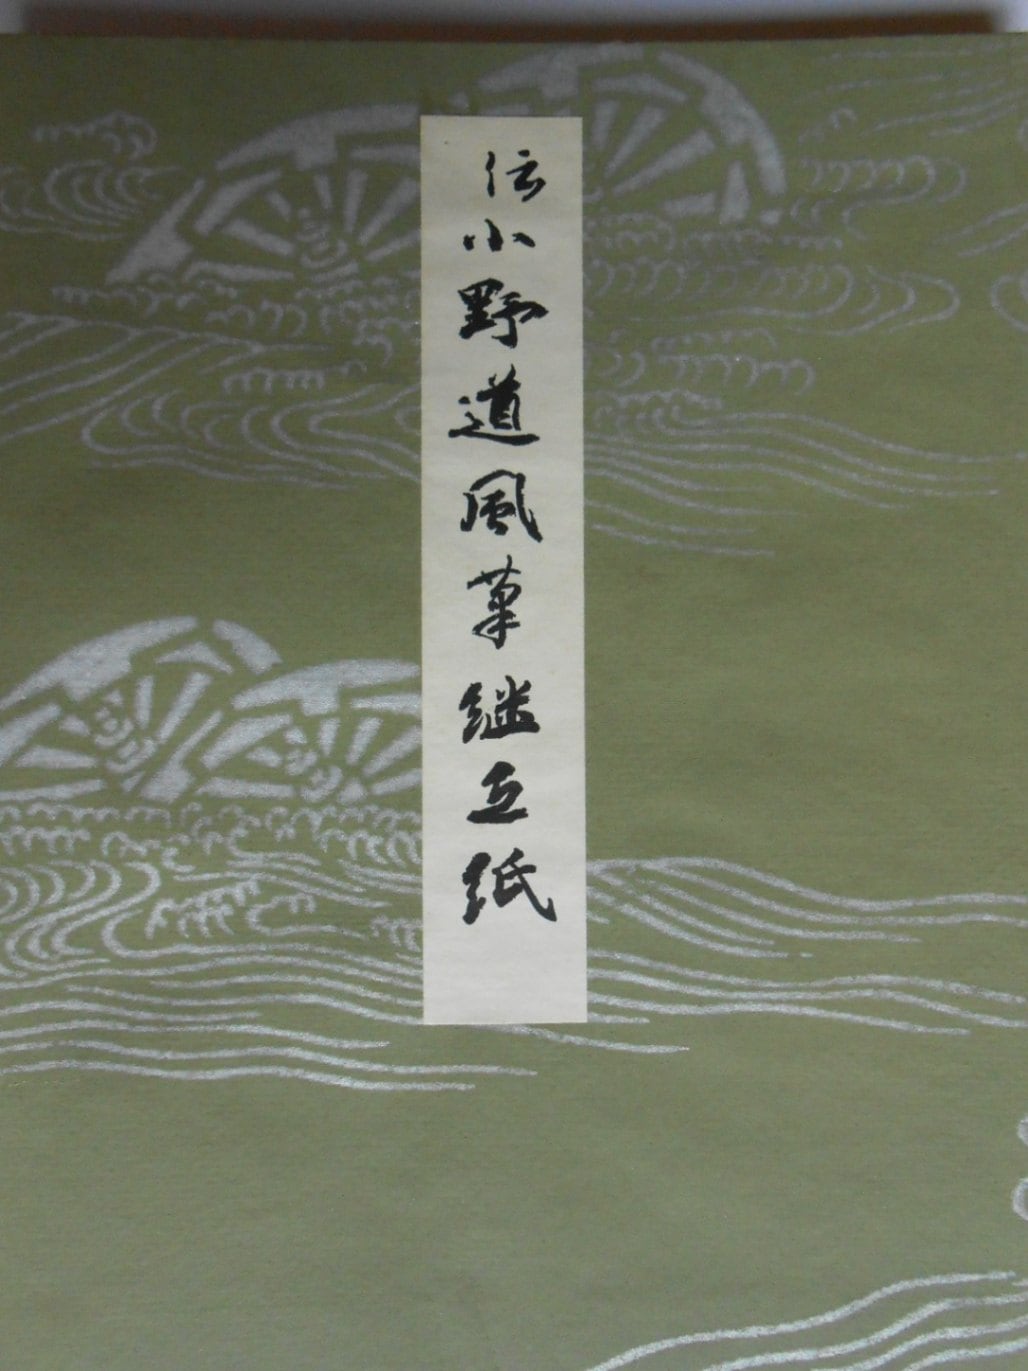 伝小野道風筆継色紙